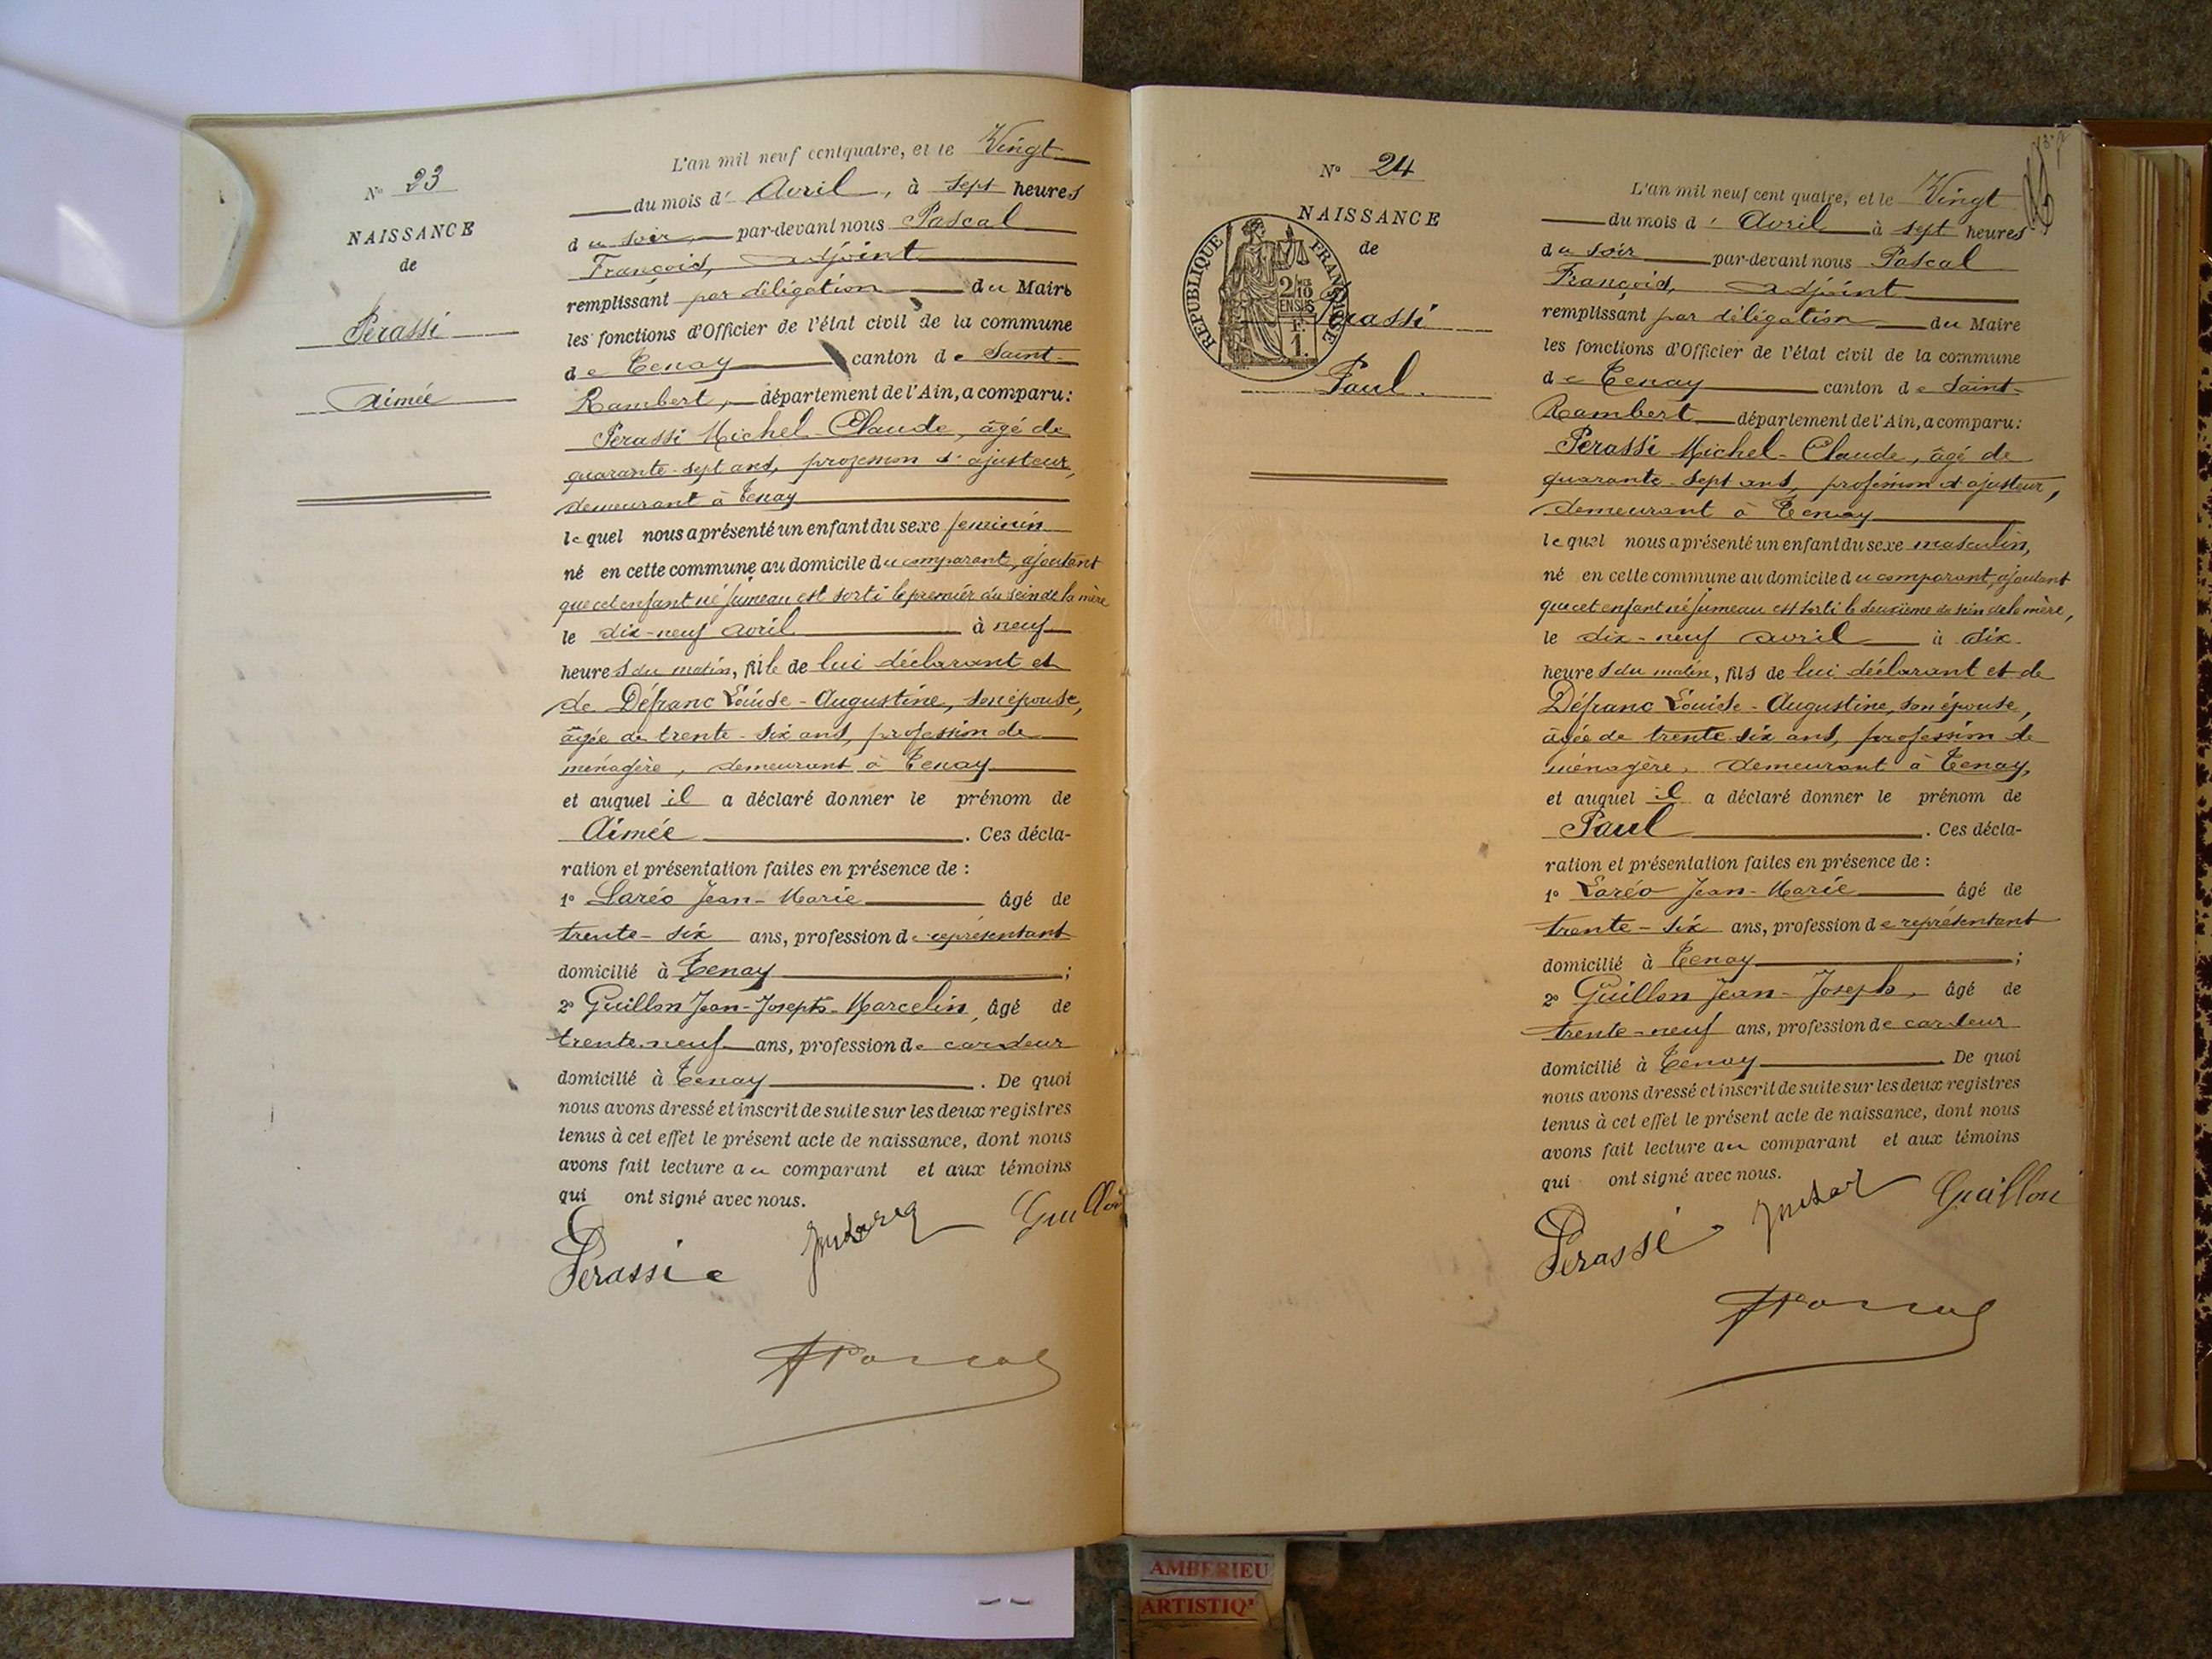 N° 23
NAISSANCE
de
Perassi
Aimée
L'an mil neuf cent quatre, et le Vingt
du mois d' Avril, à sept heures
du soir, par-devant nous Pascal
François, adjoint
remplissant par déligation du Maire
les fonctions d'Officier de l'état civil de la commune
de Tenay canton de Saint-
Rambert, département de l'Ain, a comparu:
Perassi Michel-Claude, âgé de
quarante-sept ans, profession d'ajusteur,
demeurant à Tenay
lequel nous a présenté un enfant du sexe feminin
né en cette commune au domicile du comparant, ajoutant
que cet enfant né jumeau est sorti le premier du sein de la mère
le dix-neuf avril à neuf
heures du matin, fille de lui déclarant et
de Défranc Louise-Augustine, son épouse,
âgée de trente-six ans, profession de
ménagère, demeurant à Tenay
et auquel il a déclaré donner le prénom de
Aimée. Ces décla-
ration et présentation faites en présence de :
1° Laréo Jean-Marie âgé de
trente-six ans, profession de représentant
domicilié à Tenay ;
2° Guillon Jean-Joseph-Marcelin, âgé de
trente-neuf ans, profession de cardeur
domicilié à Tenay. De quoi
nous avons dressé et inscrit de suite sur les deux registres
tenus à cet effet le présent acte de naissance, dont nous
avons fait lecture au comparant et aux témoins
qui ont signé avec nous.
Guillon
Perassi
FPascal
N° 24
NAISSANCE
de
REPUBLIQUE FRANÇAISE
2/10
EN SUS
1 F.
Perassi
Paul.
L'an mil neuf cent quatre, et le Vingt
du mois d' Avril à sept heures
du soir par-devant nous Pascal
François, adjoint
remplissant par déligation du Maire
les fonctions d'Officier de l'état civil de la commune
de Tenay canton de Saint-
Rambert département de l'Ain, a comparu:
Perassi Michel-Claude, âgé de
quarante-sept ans, profession d'ajusteur,
demeurant à Tenay
lequel nous a présenté un enfant du sexe masculin,
né en cette commune au domicile du comparant, ajoutant
que cet enfant né jumeau est sorti le deuxième du sein de la mère,
le dix-neuf avril à dix
heures du matin, fils de lui déclarant et de
Défranc Louise-Augustine, son épouse,
âgée de trente six ans, profession de
ménagère, demeurant à Tenay,
et auquel il a déclaré donner le prénom de
Paul. Ces décla-
ration et présentation faites en présence de :
1° Laréo Jean-Marie âgé de
trente-six ans, profession de représentant
domicilié à Tenay ;
2° Guillon Jean-Joseph, âgé de
trente-neuf ans, profession de cardeur
domicilié à Tenay. De quoi
nous avons dressé et inscrit de suite sur les deux registres
tenus à cet effet le présent acte de naissance, dont nous
avons fait lecture au comparant et aux témoins
qui ont signé avec nous.
Guillon
Perassi
FPascal
AMBERIEU
ARTISTIQ